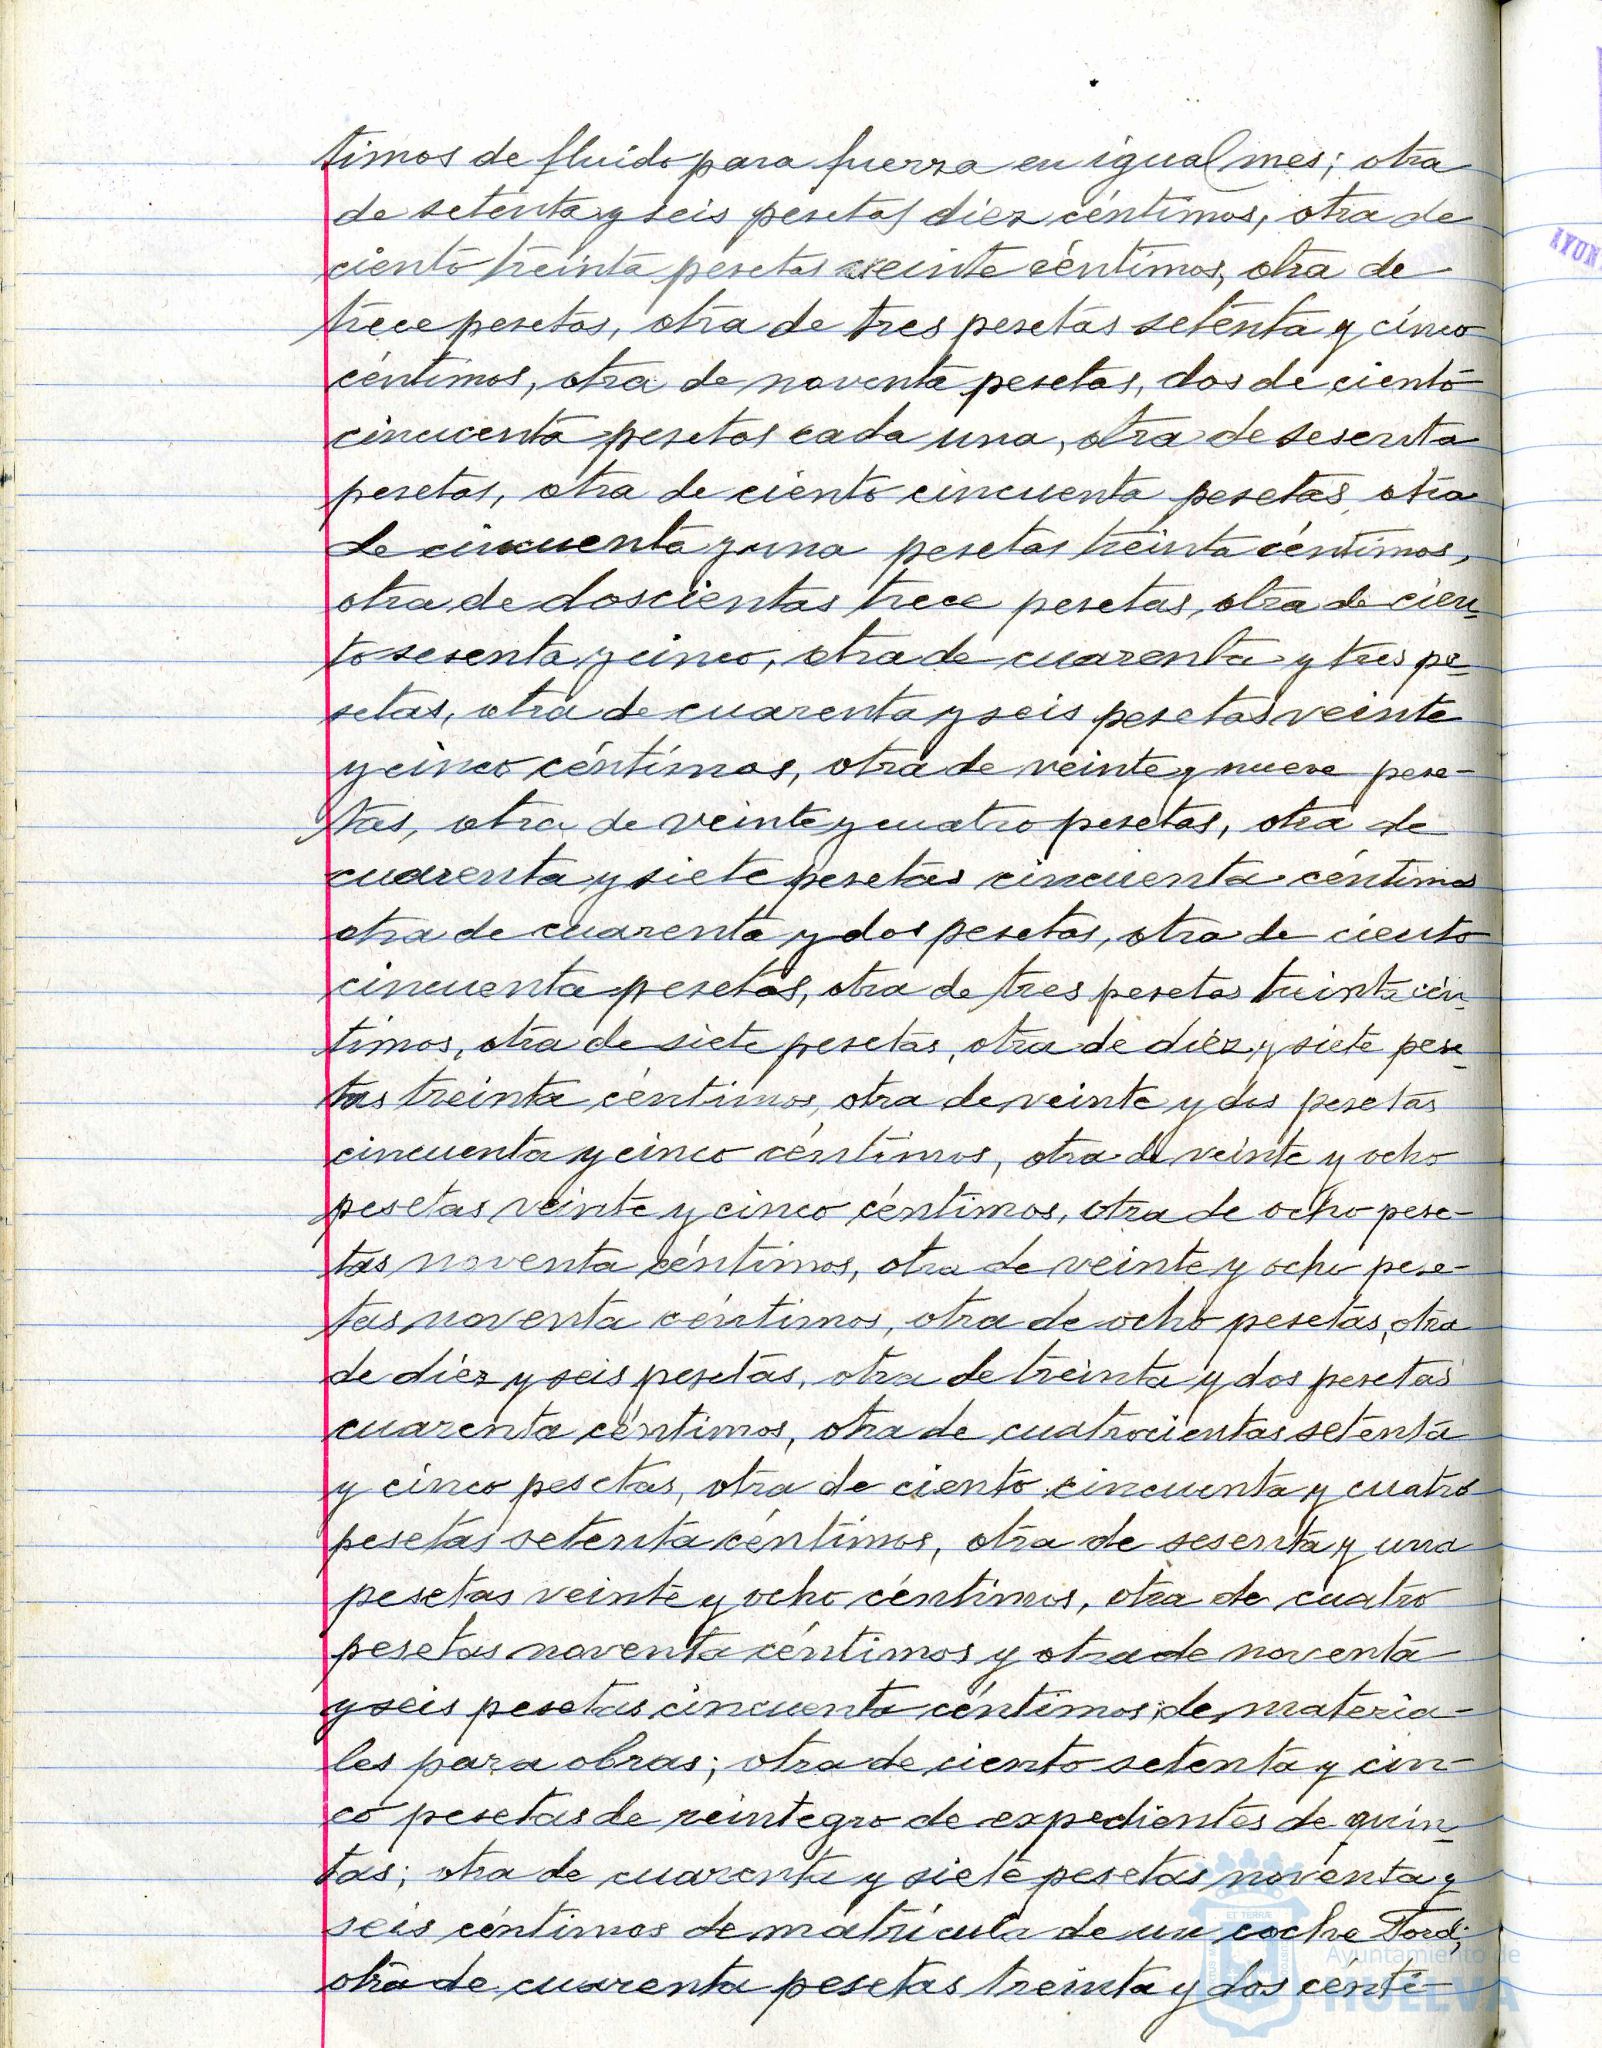 timos de fluido para fuerza en igual mes; otra
de setenta y seis pesetas diez céntimos, otra de
ciento treinta pesetas veinte céntimos, otra de
trece pesetas, otra de tres pesetas setenta y cinco
céntimos, otra de noventa pesetas, dos de ciento
cincuenta pesetas cada una, otra de sesenta
pesetas, otra de ciento cincuenta pesetas, otra
de cincuenta y una pesetas treinta céntimos,
otra de doscientas trece pesetas, otra de cien-
to sesenta y cinco, otra de cuarenta y tres pe-
setas, otra de cuarenta y seis pesetas veinte
y cinco céntimos, otra de veinte y nueve pese-
tas, otra de veinte y cuatro pesetas, otra de
cuarenta y siete pesetas cincuenta céntimos
otra de cuarenta y dos pesetas, otra de ciento
cincuenta pesetas, otra de tres pesetas treinta cén-
timos, otra de siete pesetas, otra de diez y siete pese-
tas treinta céntimos, otra de veinte y dos pesetas
cincuenta y cinco céntimos, otra de veinte y ocho
pesetas veinte y cinco céntimos, otra de ocho pese-
tas noventa céntimos, otra de veinte y ocho pese-
tas noventa céntimos, otra de ocho pesetas, otra
de diez y seis pesetas, otra de treinta y dos pesetas
cuarenta céntimos, otra de cuatrocientas setenta
y cinco pesetas, otra de ciento cincuenta y cuatro
pesetas setenta céntimos, otra de sesenta y una
pesetas veinte y ocho céntimos, otra de cuatro
pesetas noventa céntimos y otra de noventa
y seis pesetas cincuenta céntimos de materia-
les para obras; otra de ciento setenta y cin-
co pesetas de reintegro de expedientes de quin-
tas; otra de cuarenta y siete pesetas noventa y
seis céntimos de matrícula de un coche Ford;
otra de cuarenta pesetas treinta y dos cénti-
AYUN
ET TERRÆ
Ayuntamiento de
HUELVA